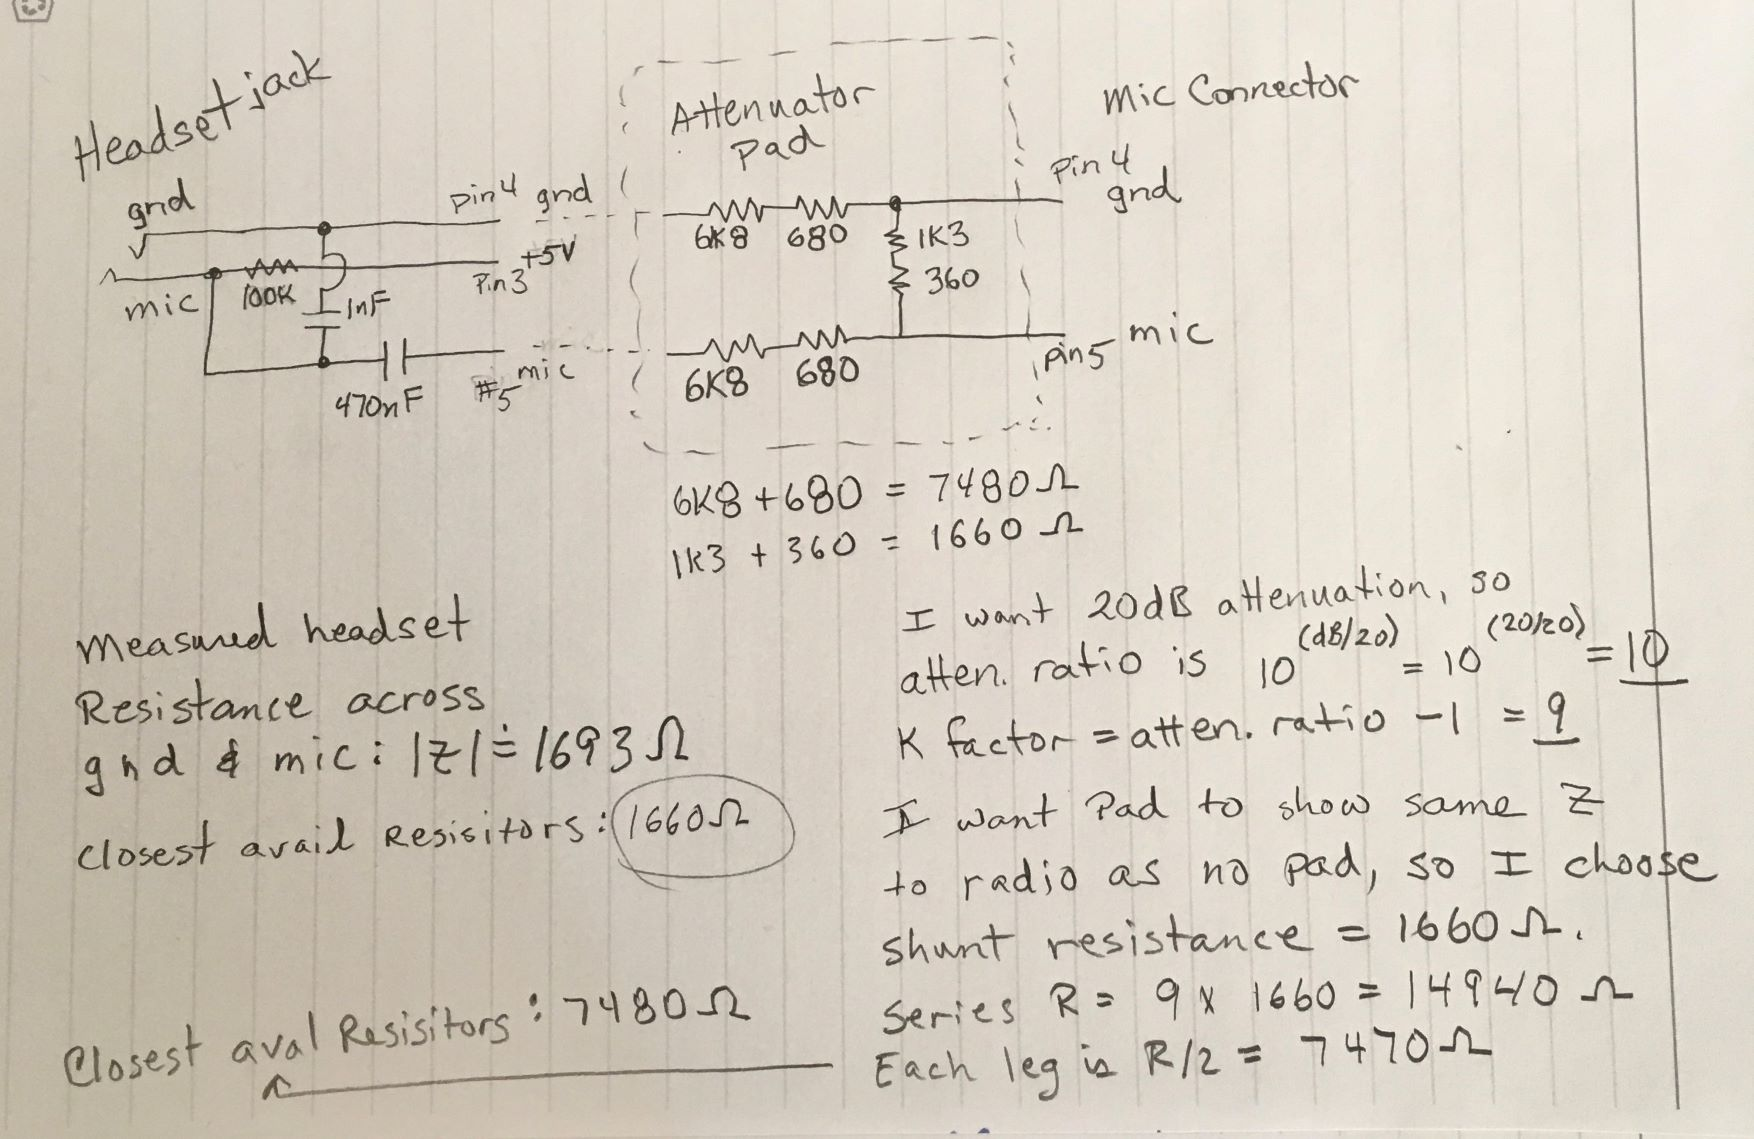 Headset jack
gnd
mic
100K
1nF
470nF
Pin4 gnd
+5V
Pin3
#5 mic
Attenuator
Pad
6K8 680
1K3
360
6K8 680
Mic Connector
Pin 4
gnd
pin5 mic
6K8 + 680 = 7480 Ω
1K3 + 360 = 1660 Ω
Measured headset
Resistance across
gnd & mic: |Z| ≐ 1693 Ω
Closest avail Resisitors: 1660Ω
Closest aval Resisitors: 7480Ω
I want 20dB attenuation, so
atten. ratio is 10^(dB/20) = 10^(20/20) = 10
K factor = atten. ratio -1 = 9
I want Pad to show same Z
to radio as no pad, so I choose
shunt resistance = 1660 Ω.
series R = 9 x 1660 = 14940 Ω
Each leg is R/2 = 7470Ω